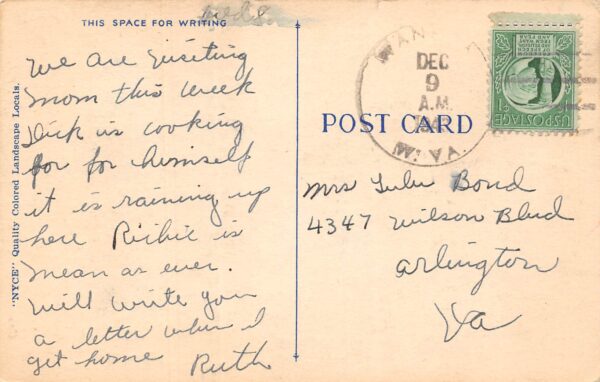 THIS SPACE FOR WRITING
We are visiting
Mom this week
Dick is cooking
for for himself
it is raining up
here Richie is
mean as ever.
Will write you
a letter when I
get home Ruth
"NYCE" Quality Colored Landscape Locals.
DEC
9
A.M.
W. VA.
POST CARD
U.S. POSTAGE
1¢
Mrs Lulu Bond
4347 Wilson Blvd
Arlington
Va